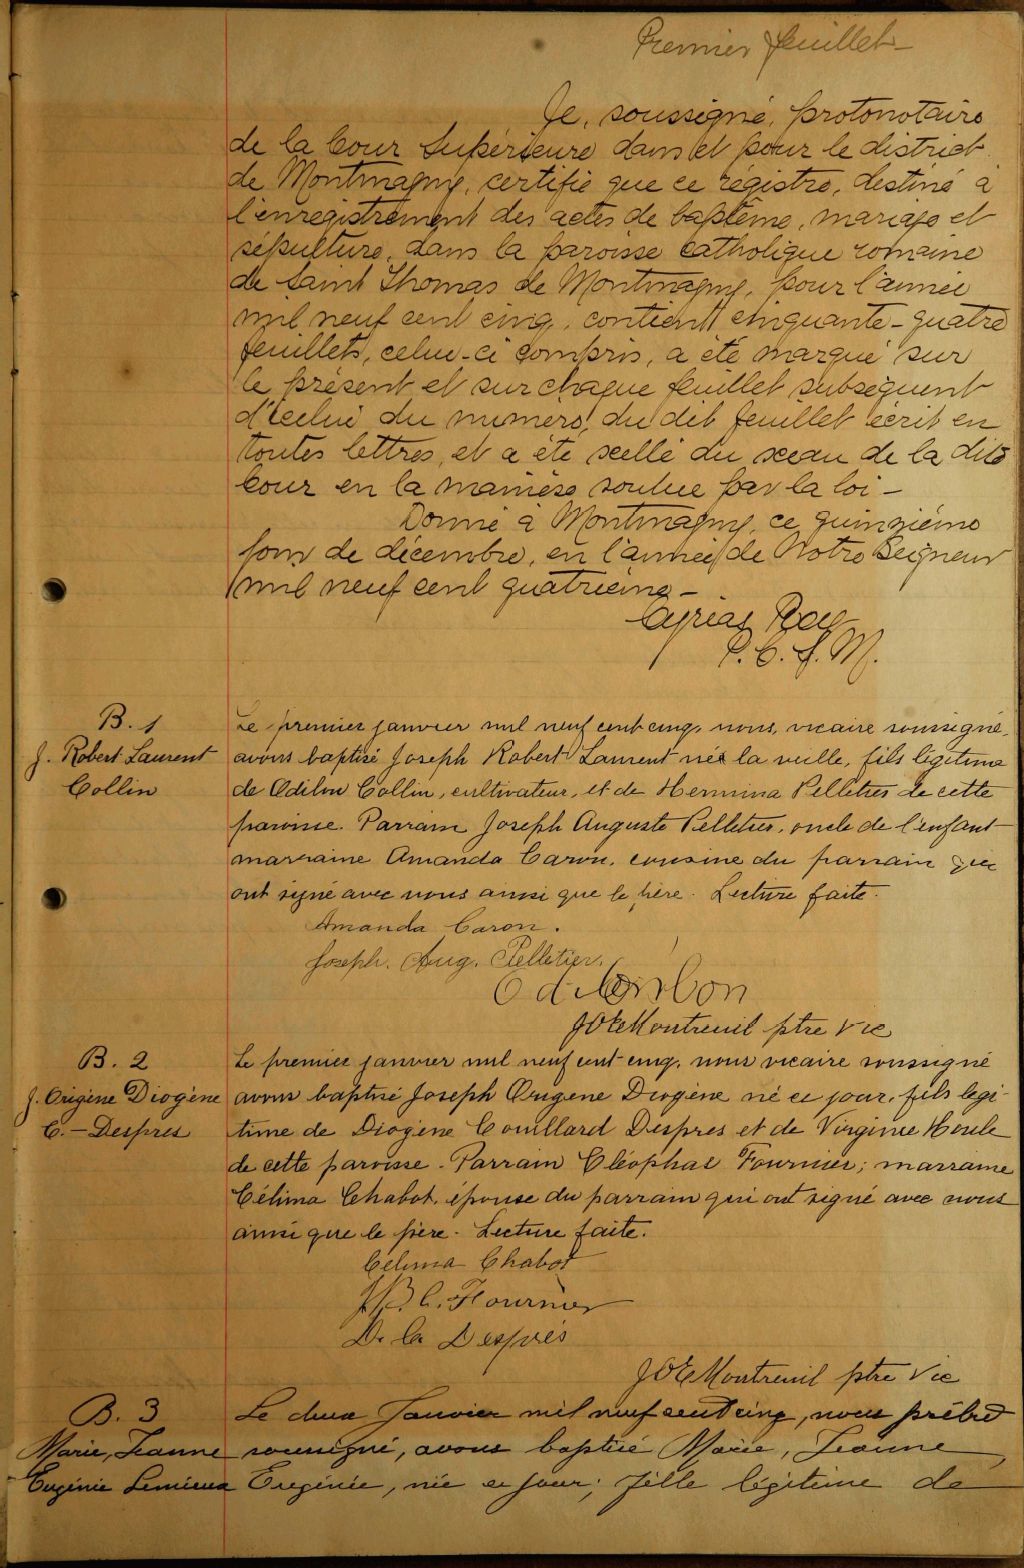 Premier feuillet
Je, soussigné, protonotaire
de la Cour Supérieure dans et pour le district
de Montmagny, certifie que ce régistre, destiné à
l'enregistrement des actes de baptême, mariage et
sépulture, dans la paroisse catholique romaine
de Saint Thomas de Montmagny, pour l'année
mil neuf cent cinq, contient cinquante-quatre
feuillets, celui-ci compris, a été marqué sur
le présent et sur chaque feuillet subséquent
d'icelui du numero du dit feuillet écrit en
toutes lettres, et a été scellé du sceau de la dite
Cour en la manière voulue par la loi -
Donné à Montmagny, ce quinzième
jour de décembre, en l'année de Notre Seigneur
mil neuf cent quatrième -
Cyrias Roy
P. C. S. M.
B. 1
J. Robert Laurent
Collin
Le premier janvier mil neuf cent cinq, nous, vicaire soussigné,
avons baptisé Joseph Robert Laurent né la veille, fils légitime
de Odilon Collin, cultivateur, et de Hermina Pelletier de cette
paroisse. Parrain Joseph Auguste Pelletier, oncle de l'enfant
marraine Amanda Caron, cousine du parrain qui
ont signé avec nous ainsi que le père. Lecture faite.
Amanda Caron.
Joseph. Aug. Pelletier.
JOEMontreuil ptre Vic
B. 2
J. Origène Diogène
C. - Despres
Le premier janvier mil neuf cent cinq, nous vicaire soussigné
avons baptisé Joseph Origene Diogène né ce jour, fils légi-
time de Diogène Couillard Despres et de Virginie
de cette paroisse. Parrain Cléophas Fournier; marraine
Célima Chabot, épouse du parrain qui ont signé avec nous
ainsi que le père. Lecture faite.
Célima Chabot
J.B.C. Fournier
D. C. Després
JOEMontreuil ptre Vic
B. 3
Marie, Jeanne
Eugénie Lemieux
Le deux Janvier mil neuf cent cinq, nous prêtre
soussigné, avons baptisé Marie, Jeanne,
Eugénie, née ce jour; fille légitime de